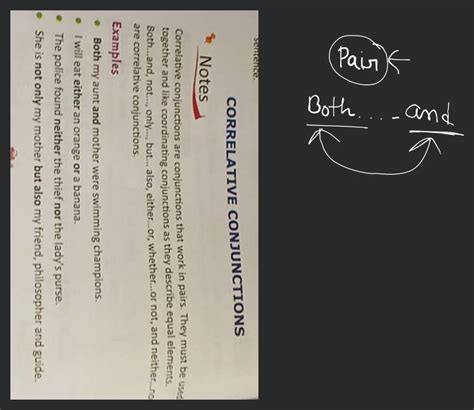 sentence.
CORRELATIVE CONJUNCTIONS
Notes
Correlative conjunctions are conjunctions that work in pairs. They must be used
together and like coordinating conjunctions as they describe equal elements.
Both...and, not..., only..., but... also, either...or, whether...or not, and neither...no
are correlative conjunctions.
Examples
Both my aunt and mother were swimming champions.
I will eat either an orange or a banana.
The police found neither the thief nor the lady's purse.
She is not only my mother but also my friend, philosopher and guide.
Pair
Both.... and